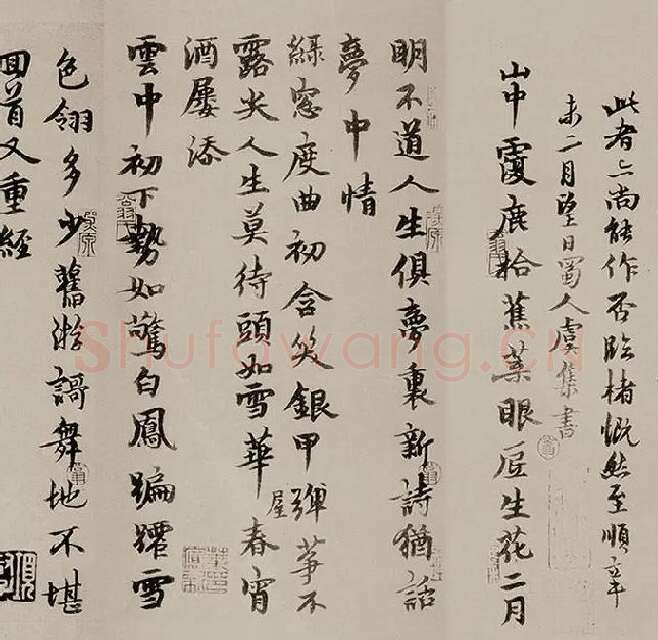 此者尚能作否臨楮慨然至順辛
未二月望日蜀人虞集書
山中覆鹿拾蕉葉眼底生花二月
明不道人生俱夢裏新詩猶話
夢中情
綠窓度曲初含笑銀甲彈箏不
露尖人生莫待頭如雪華屋春宵
酒屢添
雲中初下勢如驚白鳳蹁躚雪
色翎多少舊游謌舞地不堪
回首又重經
Shufawang.CN